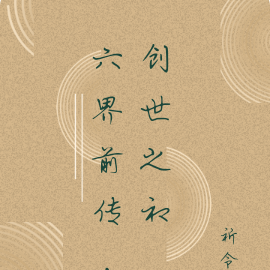 创世之初
六界前传
祈令